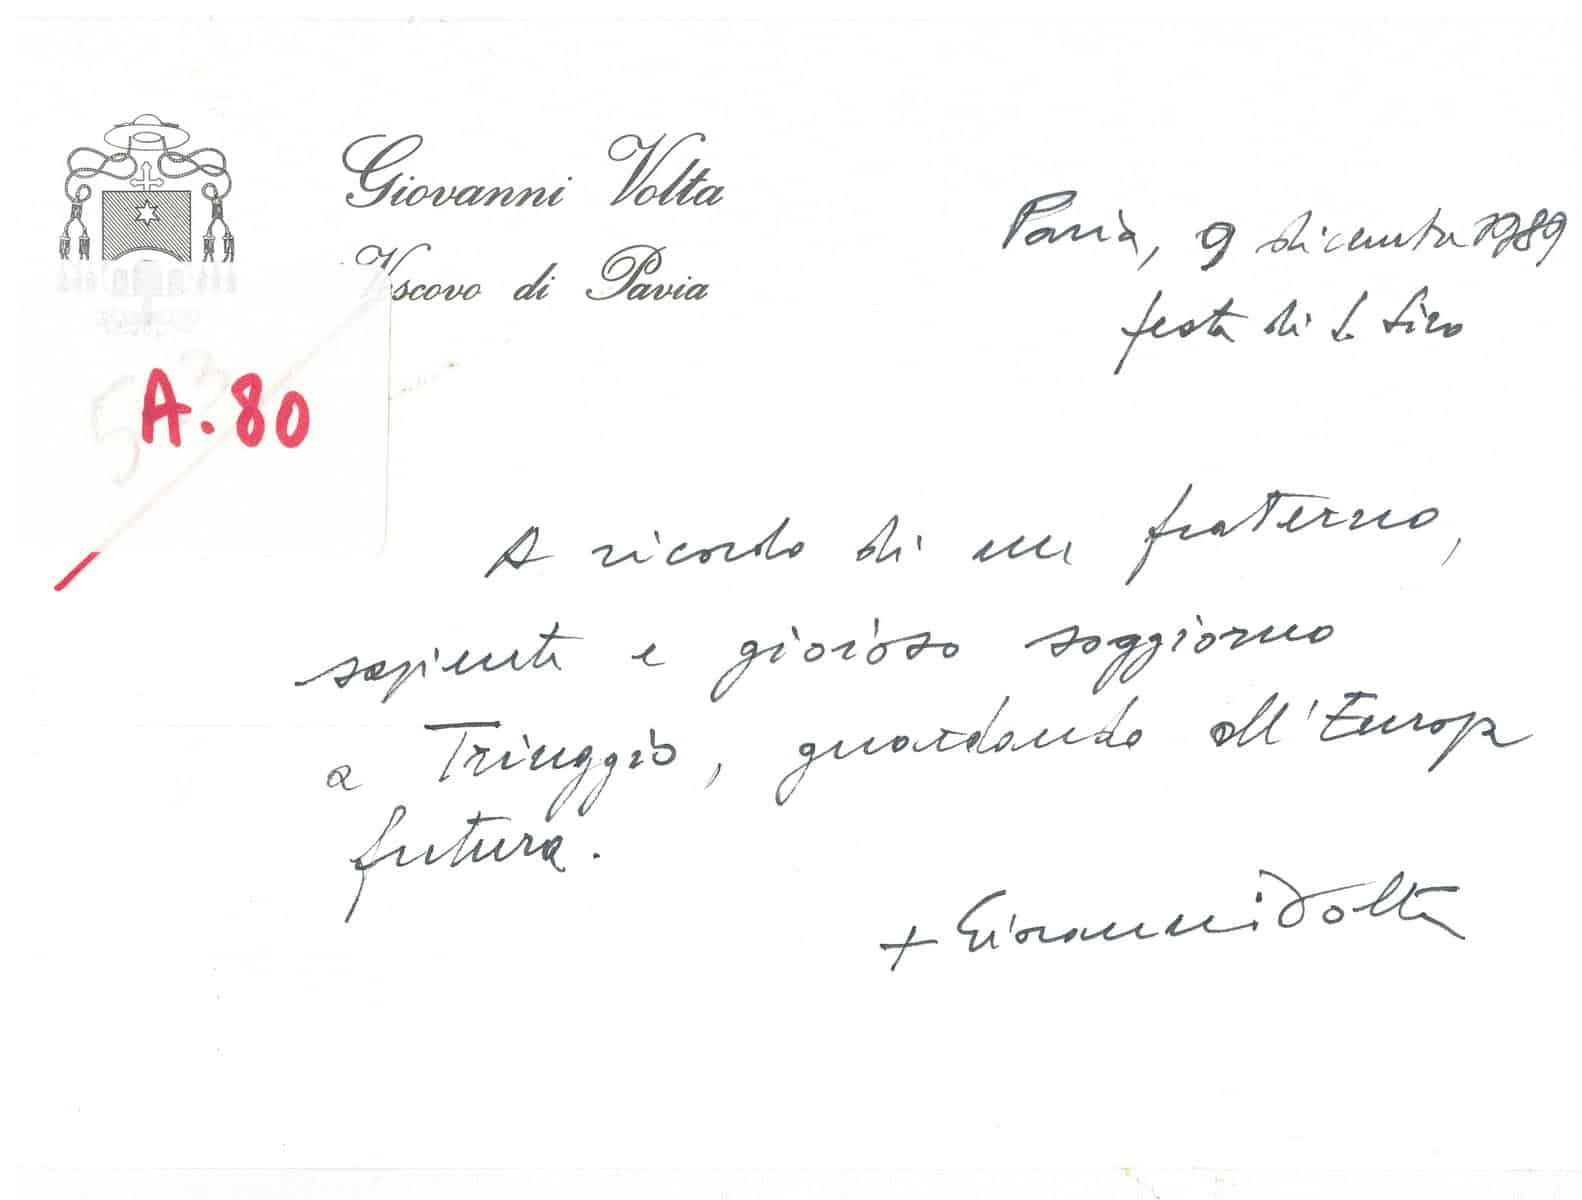 Giovanni Volta
Vescovo di Pavia
Pavia, 9 dicembre 1989
festa di S. Siro
53
A. 80
A ricordo di un fraterno,
sapiente e gioioso soggiorno
a Triuggio, guardando all'Europa
futura.
+ Giovanni Volta